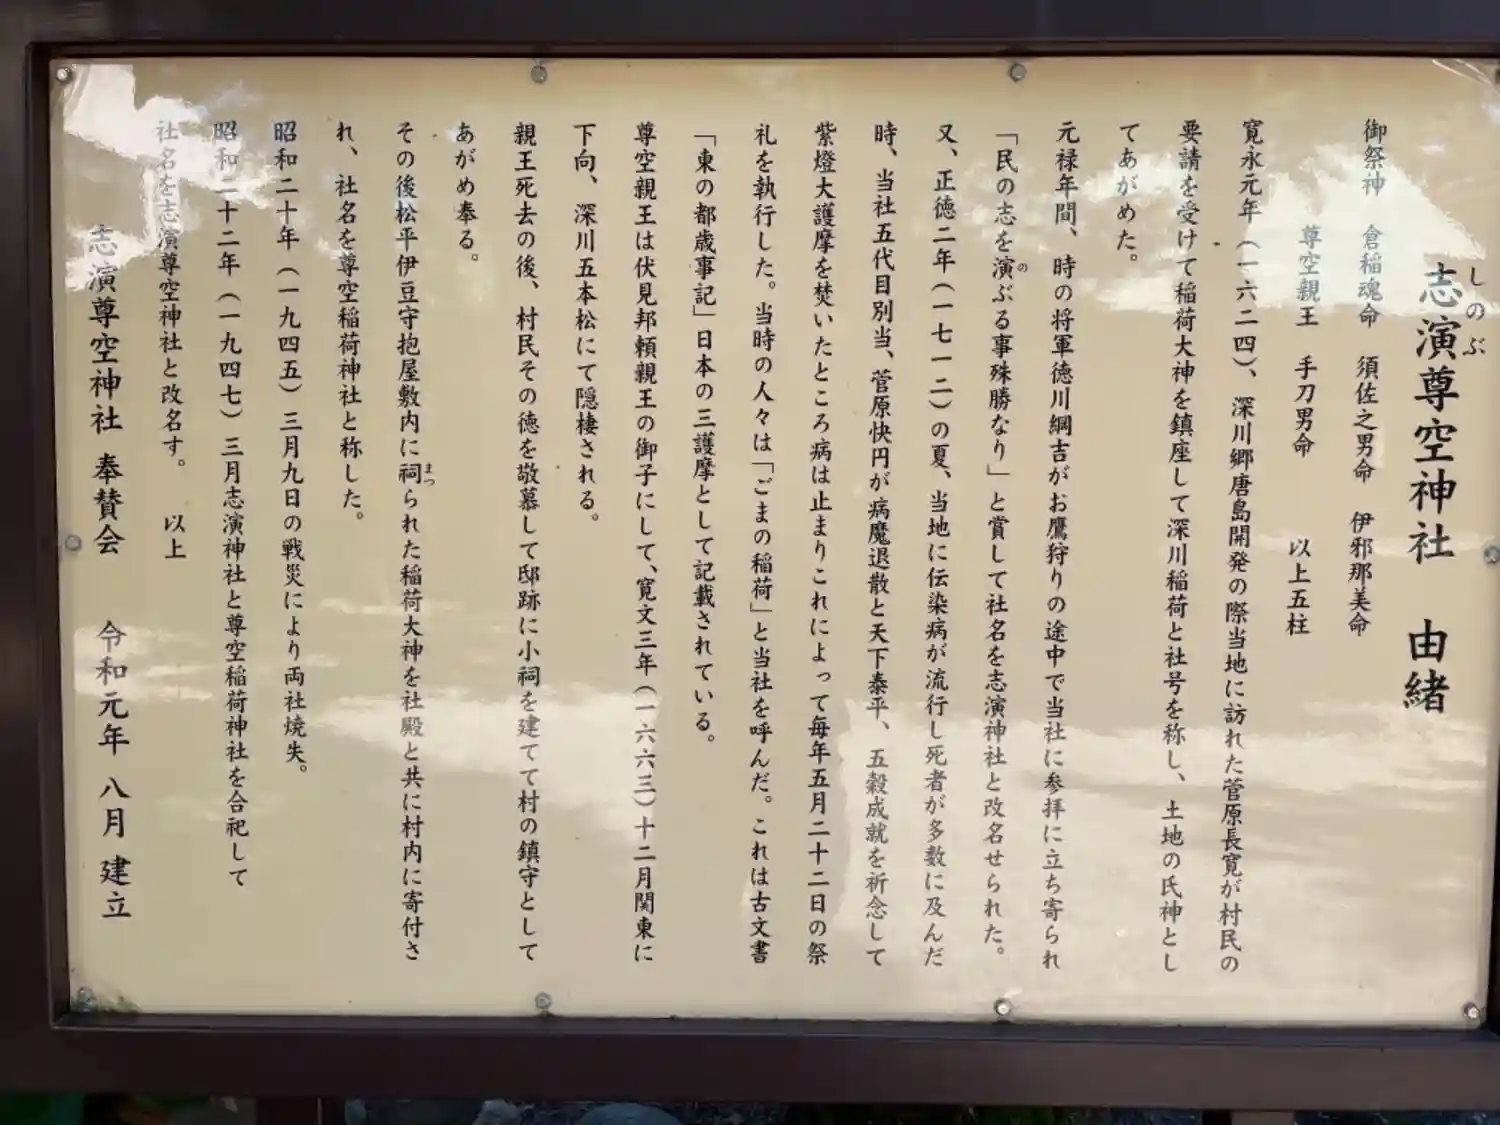 志演尊空神社　由緒
しのぶ
御祭神　倉稲魂命　須佐之男命　伊邪那美命
尊空親王　手刀男命　以上五柱
寛永元年（一六二四）、深川郷唐島開発の際当地に訪れた菅原長寛が村民の
要請を受けて稲荷大神を鎮座して深川稲荷と社号を称し、土地の氏神とし
てあがめた。
元禄年間、時の将軍徳川綱吉がお鷹狩りの途中で当社に参拝に立ち寄られ
「民の志を演ぶる事殊勝なり」と賞して社名を志演神社と改名せられた。
の
又、正徳二年（一七一二）の夏、当地に伝染病が流行し死者が多数に及んだ
時、当社五代目別当、菅原快円が病魔退散と天下泰平、五穀成就を祈念して
紫燈大護摩を焚いたところ病は止まりこれによって毎年五月二十二日の祭
礼を執行した。当時の人々は「ごまの稲荷」と当社を呼んだ。これは古文書
「東の都歳事記」日本の三護摩として記載されている。
尊空親王は伏見邦頼親王の御子にして、寛文三年（一六六三）十二月関東に
下向、深川五本松にて隠棲される。
親王死去の後、村民その徳を敬慕して邸跡に小祠を建てて村の鎮守として
あがめ奉る。
その後松平伊豆守抱屋敷内に祠られた稲荷大神を社殿と共に村内に寄付さ
まつ
れ、社名を尊空稲荷神社と称した。
昭和二十年（一九四五）三月九日の戦災により両社焼失。
昭和二十二年（一九四七）三月志演神社と尊空稲荷神社を合祀して
社名を志演尊空神社と改名す。　以上
志演尊空神社　奉賛会　令和元年　八月　建立